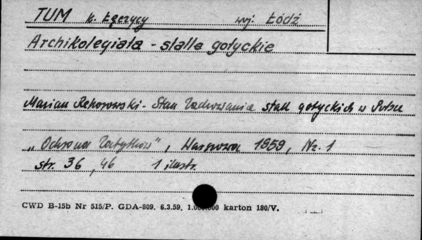 TUM k. Łęczycy woj. Łódź
Archikolegiata - stalle gotyckie
Marian Rehorowski - Stan Zachowania stall gotyckich w Polsce
„Ochrona Zabytków", Warszawa 1959, Nr. 1
str. 36, 46 1 ilustr.
CWD B-15b Nr 515/P. GDA-809. 6.3.59. karton 180/V.